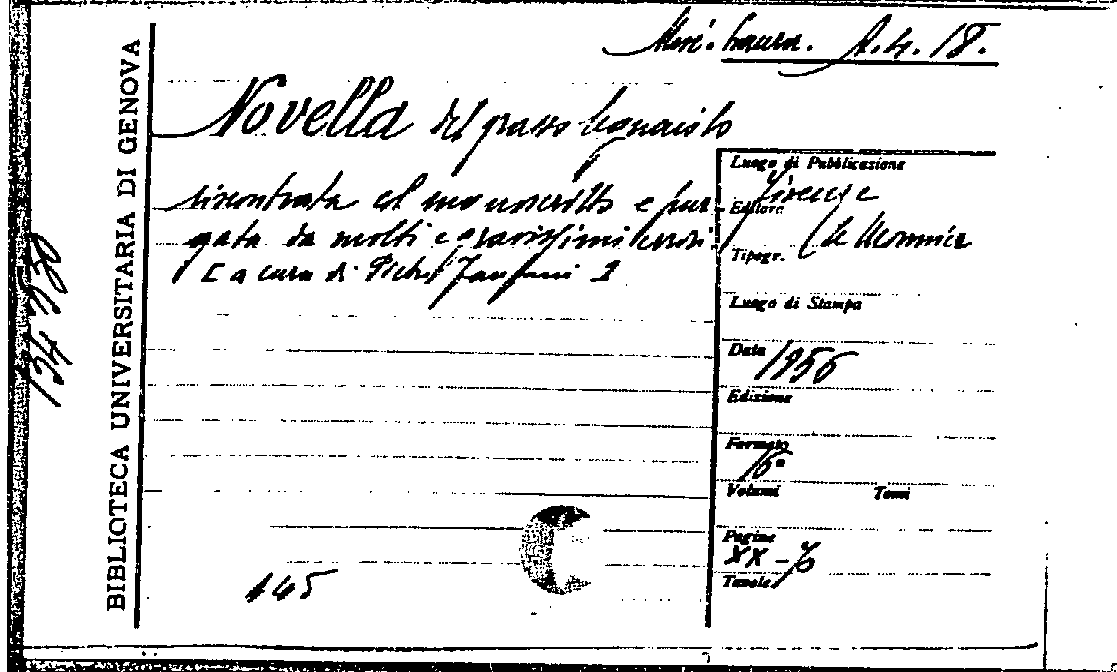 Misc. Laura. A.4.18.
Novella del grasso legnaiolo
riscontrata col manoscritto e pur-
gata da molti e gravissimi errori
[a cura di Pietro Fanfani]
145
BIBLIOTECA UNIVERSITARIA DI GENOVA
Luogo di Pubblicazione
Firenze
Editore
Le Monnier
Tipogr.
Luogo di Stampa
Data 1856
Edizione
Formato
16°
Volumi Tomi
Pagine
XX-76
Tavole